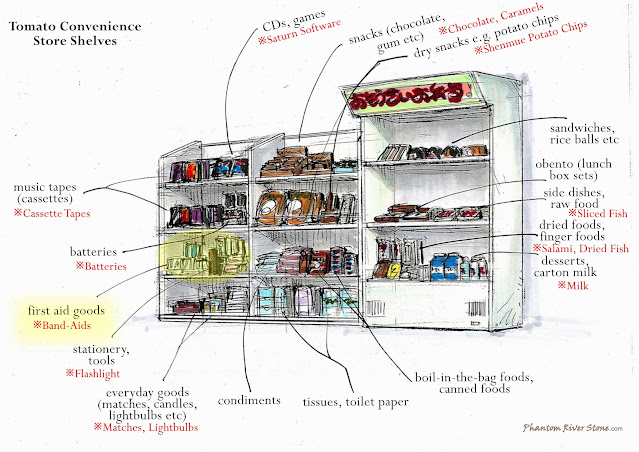 Tomato Convenience
Store Shelves
CDs, games
※Saturn Software
snacks (chocolate,
gum etc)
※Chocolate, Caramels
dry snacks e.g. potato chips
※Shenmue Potato Chips
sandwiches,
rice balls etc
obento (lunch
box sets)
side dishes,
raw food
※Sliced Fish
dried foods,
finger foods
※Salami, Dried Fish
desserts,
carton milk
※Milk
music tapes
(cassettes)
※Cassette Tapes
batteries
※Batteries
first aid goods
※Band-Aids
stationery,
tools
※Flashlight
everyday goods
(matches, candles,
lightbulbs etc)
※Matches, Lightbulbs
condiments
tissues, toilet paper
boil-in-the-bag foods,
canned foods
Phantom River Stone.com